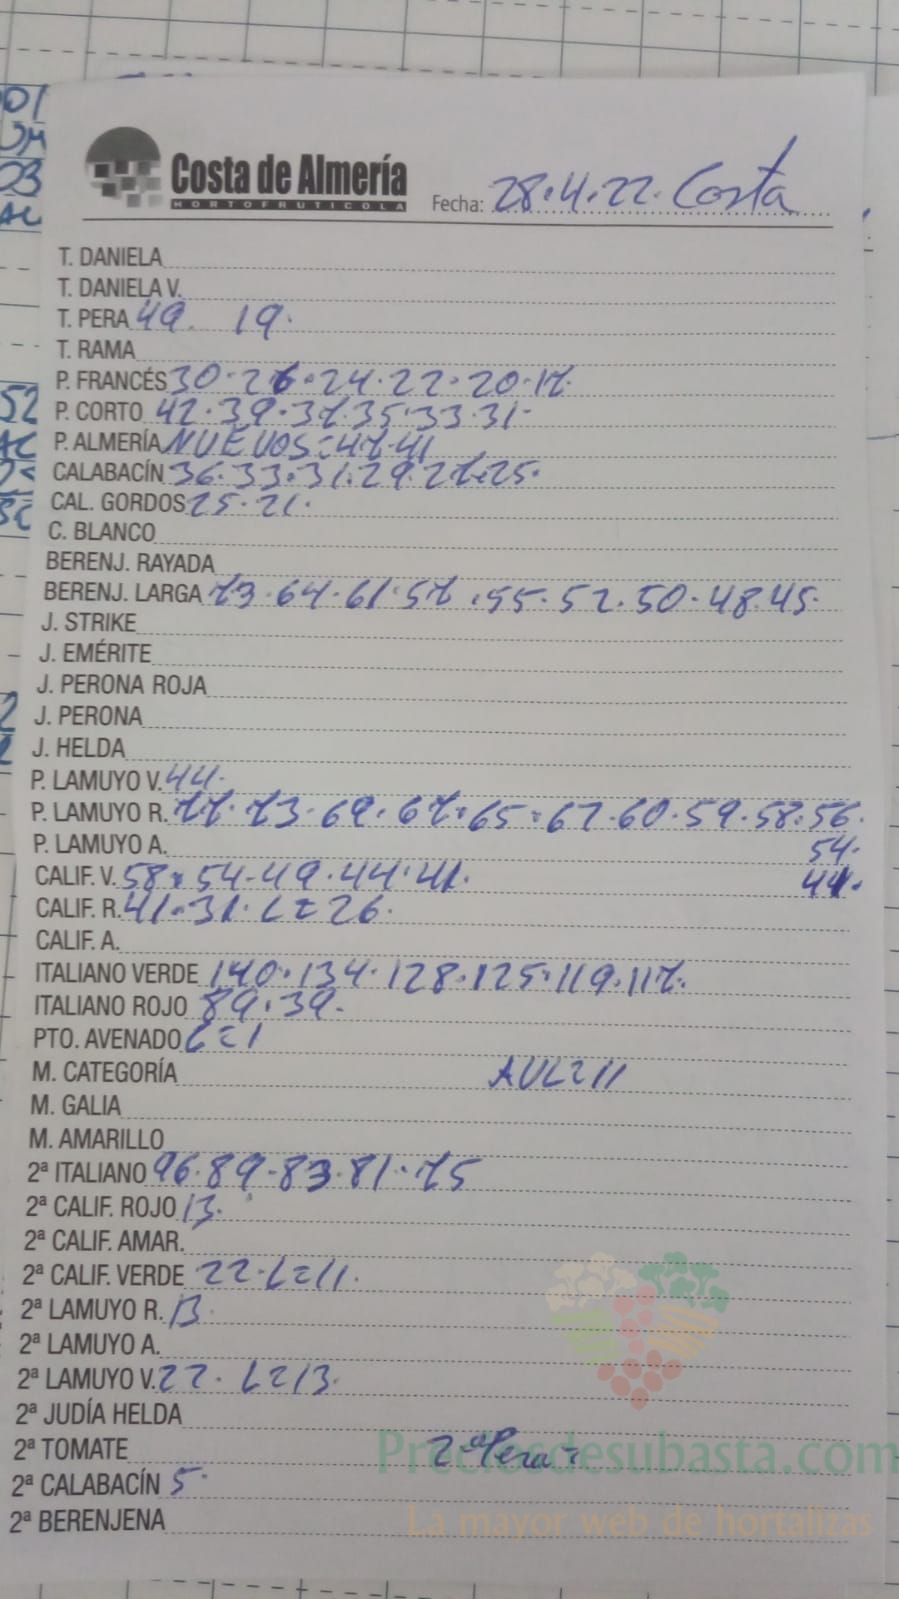 Costa de Almería
HORTOFRUTICOLA
Fecha: 28.4.22. Costa
T. DANIELA
T. DANIELA V.
T. PERA 49. 19.
T. RAMA
P. FRANCÉS 30.26.24.22.20.17.
P. CORTO 42.39.37.35.33.31.
P. ALMERÍA NUEVOS=47.41
CALABACÍN 36.33.31.29.27.25.
CAL. GORDOS 25.21.
C. BLANCO
BERENJ. RAYADA
BERENJ. LARGA 73.64.61.57.55.52.50.48.45.
J. STRIKE
J. EMÉRITE
J. PERONA ROJA
J. PERONA
J. HELDA
P. LAMUYO V. 44.
P. LAMUYO R. 77.73.69.67.65.62.60.59.58.56.
P. LAMUYO A. 54.
CALIF. V. 58.54.49.44.41. 44.
CALIF. R. 41.31.L=26.
CALIF. A.
ITALIANO VERDE 140.134.128.125.119.117.
ITALIANO ROJO 89.39.
PTO. AVENADO L=1
M. CATEGORÍA AVL=11
M. GALIA
M. AMARILLO
2ª ITALIANO 96.89.83.81.75
2ª CALIF. ROJO 13.
2ª CALIF. AMAR.
2ª CALIF. VERDE 22.L=11.
2ª LAMUYO R. 13.
2ª LAMUYO A.
2ª LAMUYO V. 22. L=13.
2ª JUDÍA HELDA
2ª TOMATE 2ª Pera =
2ª CALABACÍN 5.
2ª BERENJENA
Preciosdesubasta.com
La mayor web de hortalizas